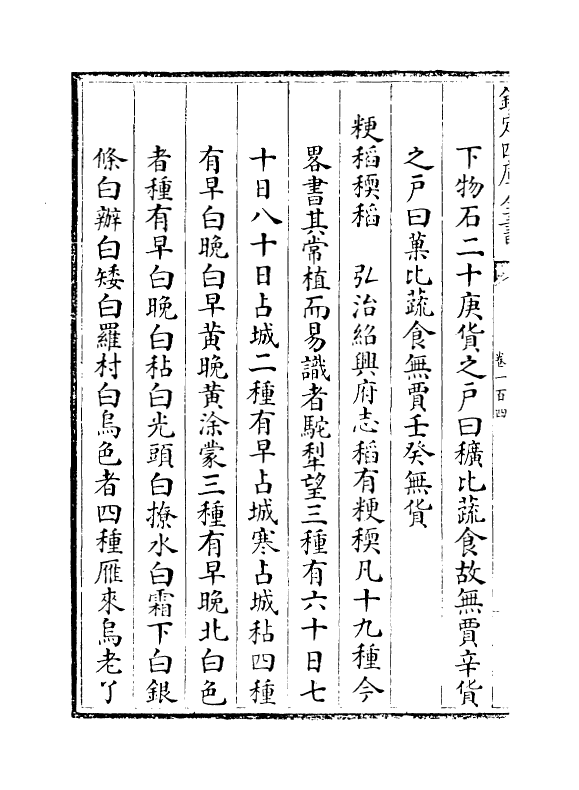 欽定四庫全書
卷一百四
下物石二十庚貨之戸曰穬比蔬食故無賈辛貨
之戸曰菓比蔬食無賈壬癸無貨
粳稻稬稻　弘治紹興府志稻有粳稬凡十九種今
畧書其常植而易識者駝犁望三種有六十日七
十日八十日占城二種有早占城寒占城秥四種
有早白晚白早黄晚黄涂蒙三種有早晚北白色
者種有早白晚白秥白光頭白撩水白霜下白銀
條白辦白矮白羅村白烏色者四種雁來烏老丫